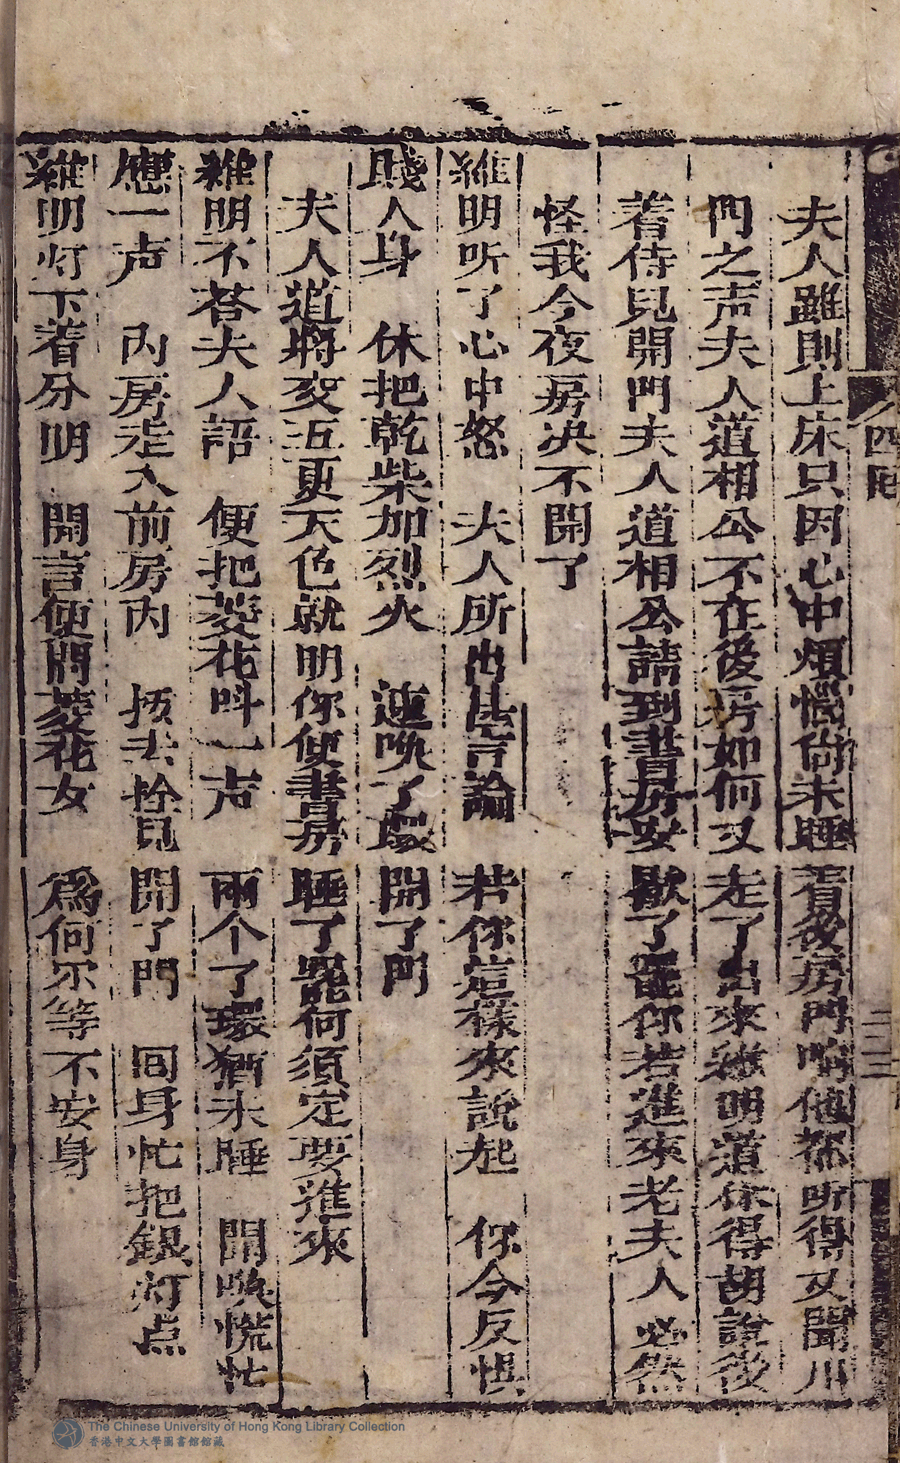 夫人雖則上床只因心中煩惱尚未睡着後房門响他都听得又聞川
門之声夫人道相公不在後房如何又走了出來維明道休得胡說後
着侍兒開門夫人道相公請到書房安歇了罷你若進來老夫人必然
怪我今夜房决不開了
維明听了心中怒 夫人所出甚言論 若你這樣來說起 你今反惧
賤人身 休把乾柴加烈火 連喚了環開了門
夫人道將交五更天色就明你便書房睡了罷何須定要進來
維明不答夫人語 便把菱花呌一声 兩个了環猶未睡 聞喚慌忙
應一声 內房走入前房內 扳去拴兒開了門 回身忙把銀灯点
維明灯下着分明 開言便問菱花女 爲何不等不安身
四
二三
The Chinese University of Hong Kong Library Collection
香港中文大學圖書館館藏